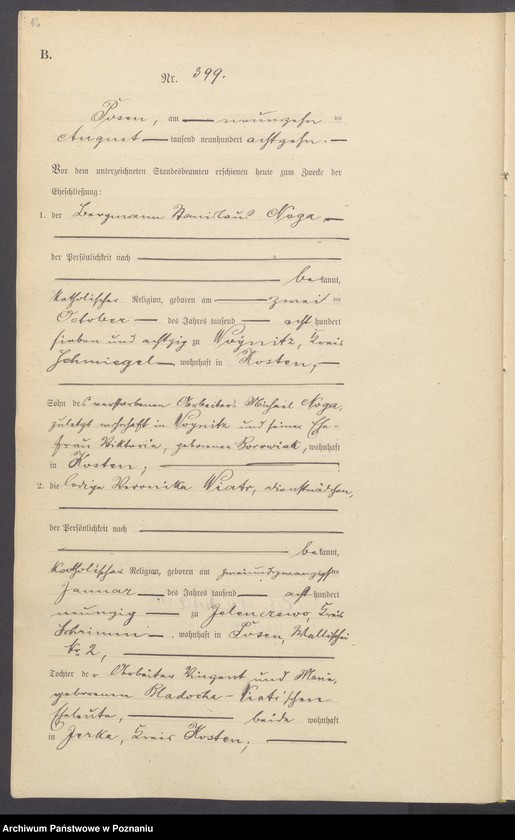 B.
Nr. 399.
Posen, am neunzehn ten
August tausend neunhundert achtzehn.
Vor dem unterzeichneten Standesbeamten erschienen heute zum Zwecke der
Eheschließung:
1. der Bergmann Stanislaus Noga
der Persönlichkeit nach
bekannt,
katholischer Religion, geboren am zwei ten
October des Jahres tausend acht hundert
sieben und achtzig zu Woynitz, Kreis
Schmiegel wohnhaft in Kosten,
Sohn des verstorbenen Arbeiters Michael Noga,
zuletzt wohnhaft in Woynitz und seiner Ehe-
frau Viktoria, geborenen Borowiak, wohnhaft
in Kosten;
2. die ledige Veronika Wiatr, Dienstmädchen,
der Persönlichkeit nach
bekannt,
katholischer Religion, geboren am zweiundzwanzigsten
Januar des Jahres tausend acht hundert
neunzig zu Jelenczewo, Kreis
Schrimm, wohnhaft in Posen, Wallischei
No 2,
Tochter der Arbeiter Vinzent und Marie,
geborenen Kladocha-Wiatr'schen
Eheleute, beide wohnhaft
in Jerka, Kreis Kosten;
Archiwum Państwowe w Poznaniu